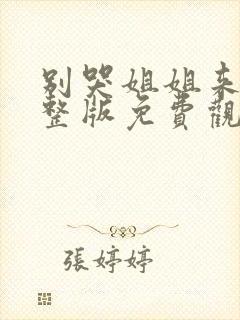 别哭姐姐来
整版免費觀
張婷婷